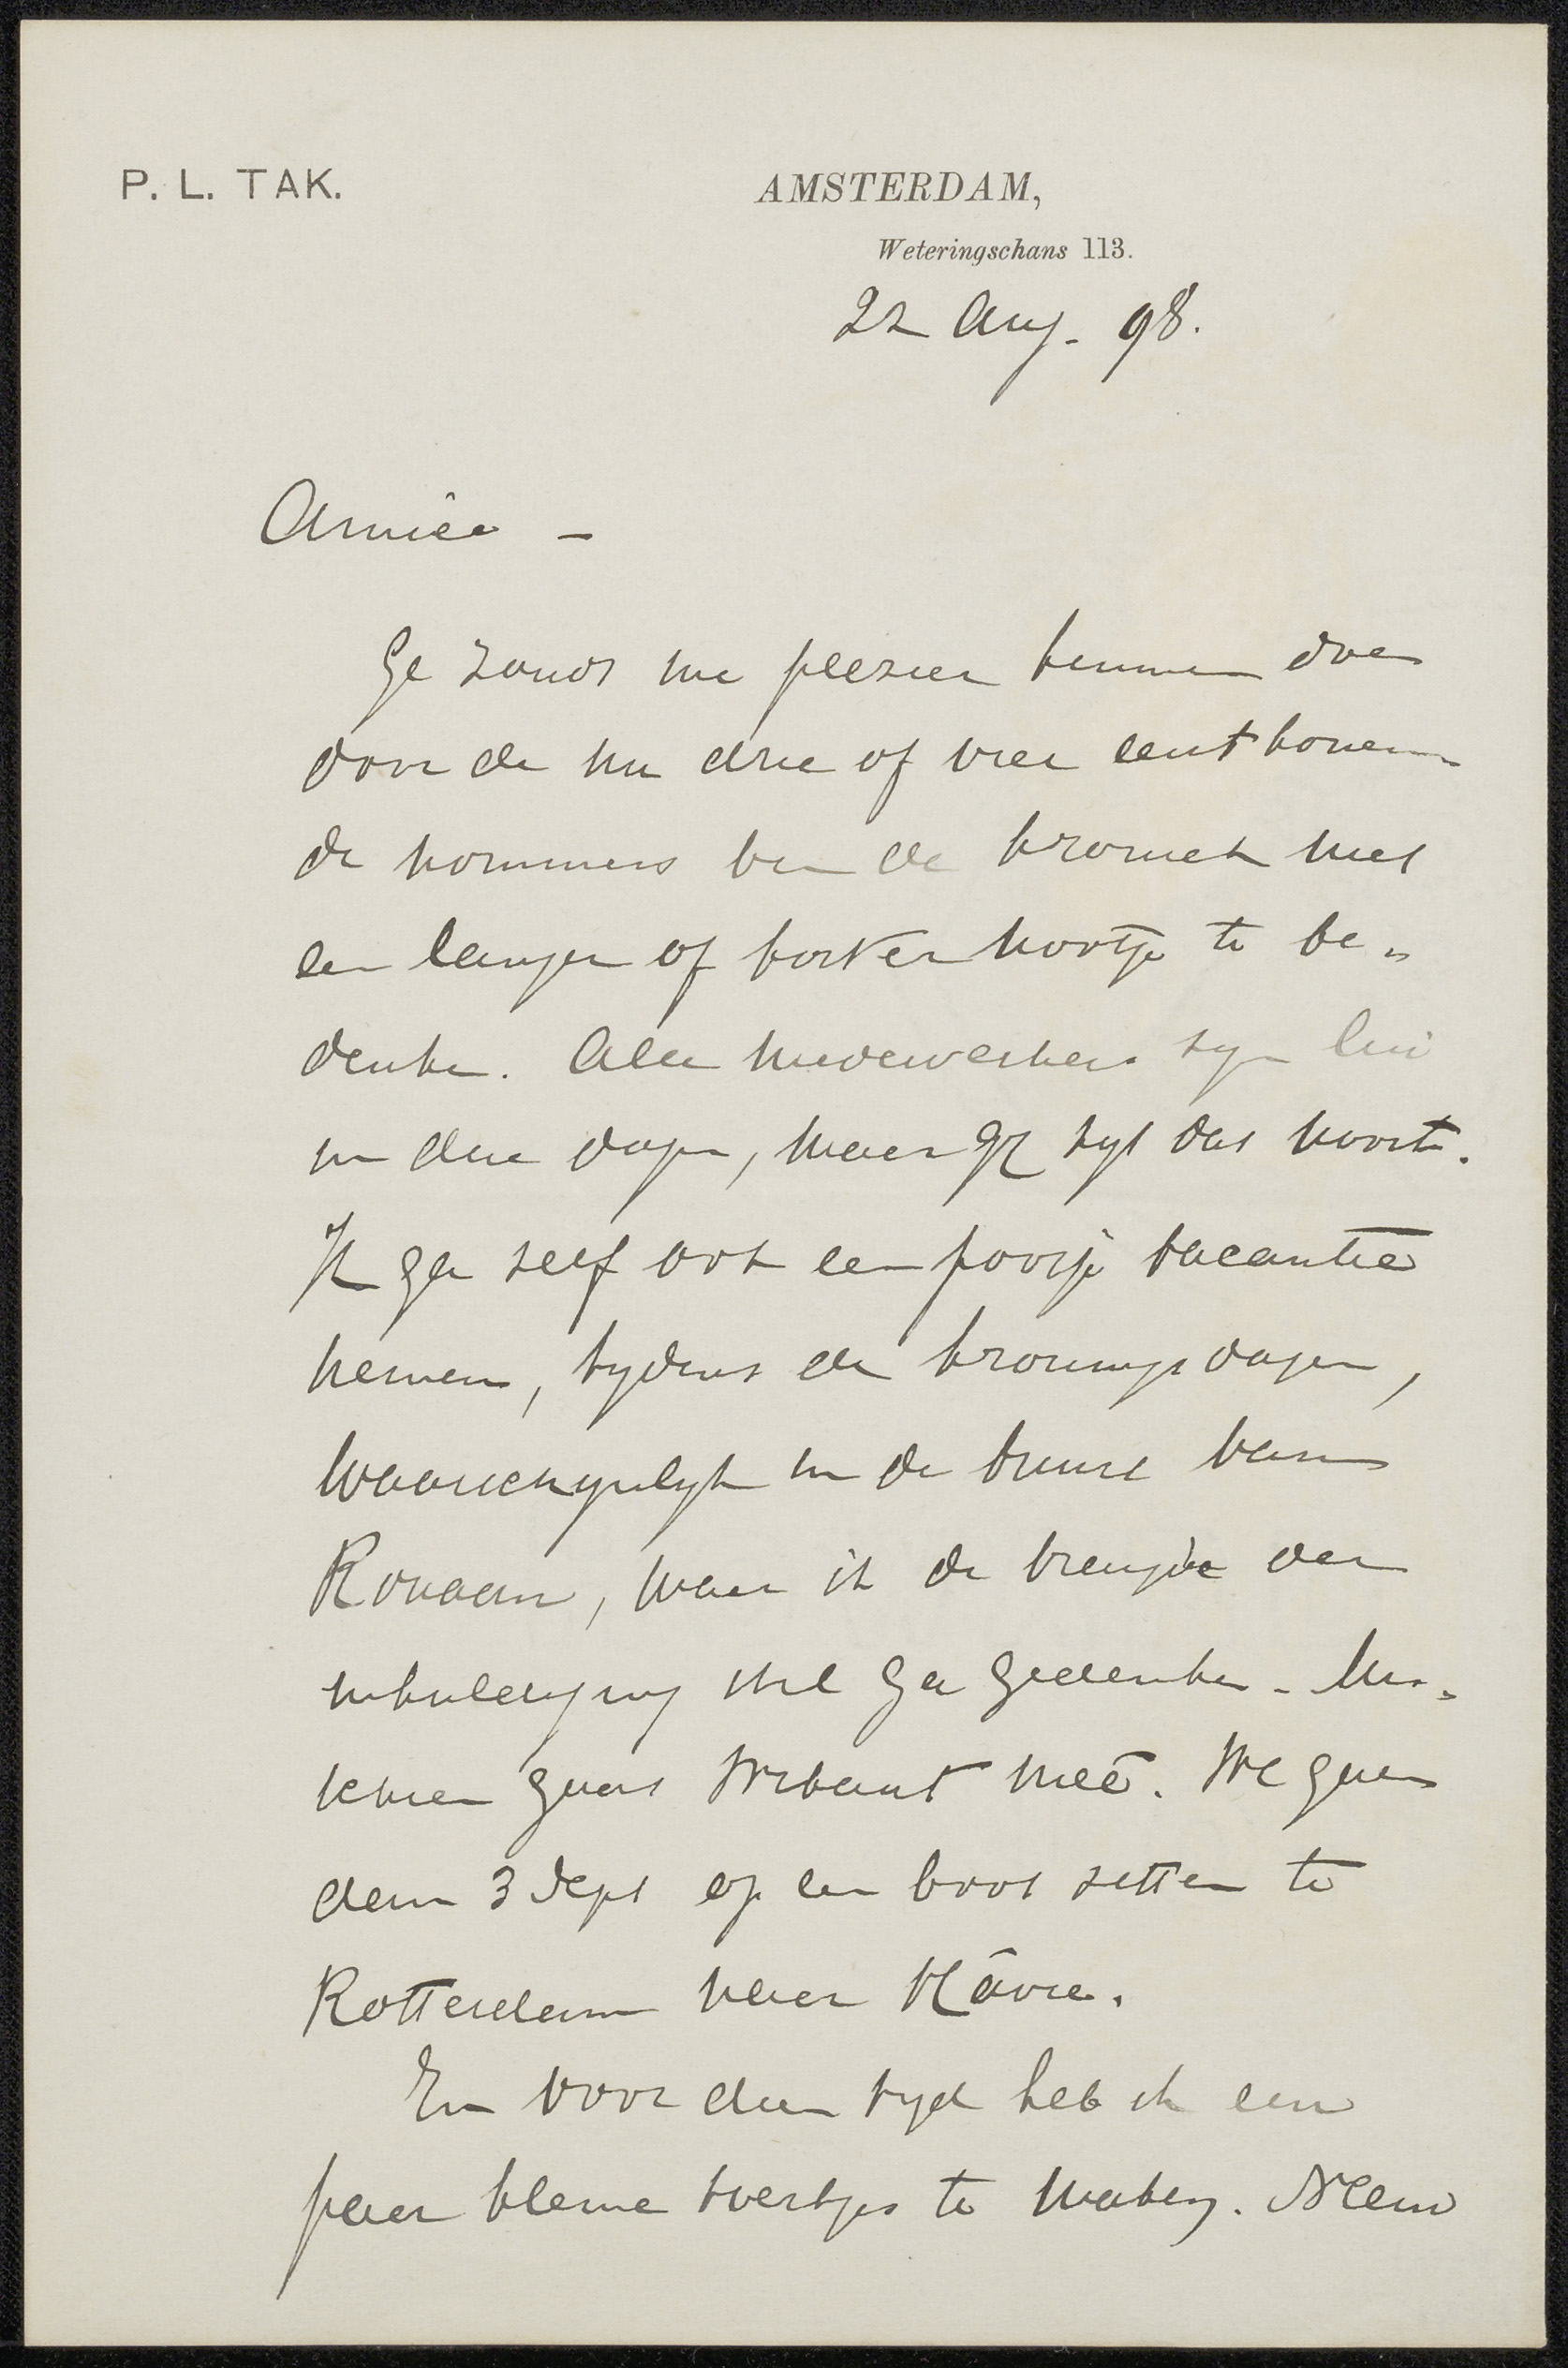 P. L. TAK.
AMSTERDAM,
Weteringschans 113.
22 Aug. 98.
Amice –
Ge zoudt me plezier kunnen doen
door de nu drie of vier eerstkomen-
de nommers van de kroniek met
een langer of korter woordje te be-
denken. Alle medewerkers zijn lui
in deze dagen, maar gij zijt dat nooit.
Ik ga zelf ook een poosje vacantie
nemen, tijdens de kroningsdagen,
waarschijnlijk in de buurt van
Rouaan, waar ik de vreugde der
inhuldiging stil ga gedenken. Mis-
schien gaat Wibaut meê. We gaan
dan 3 Sept op een boot zitten te
Rotterdam naar Hâvre.
En voor dien tijd heb ik een
paar kleine toertjes te maken. Neem